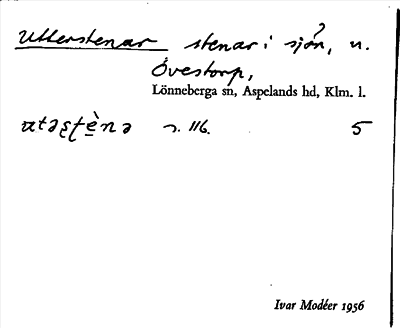 Utterstenar stenar i sjön, n.
Övestorp,
Lönneberga sn, Aspelands hd, Klm. l.
s. 116. 5
Ivar Modéer 1956